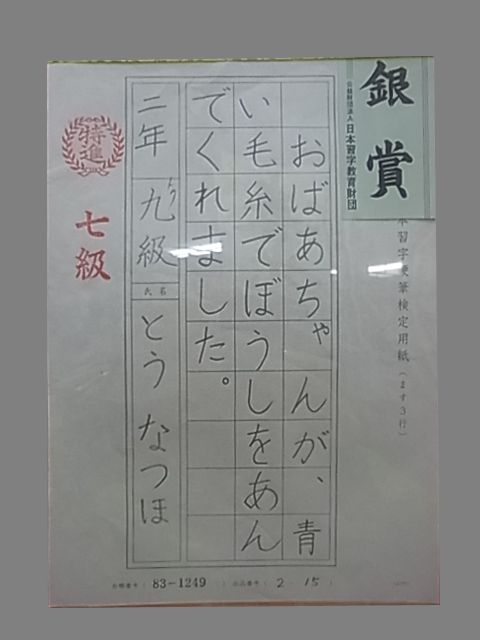 銀賞
公益財団法人 日本習字教育財団
本習字硬筆検定用紙(ます3行)
おばあちゃんが、青
い毛糸でぼうしをあん
でくれました。
二年 九級 氏名 とうなつほ
特進
七級
83-1249
2-15